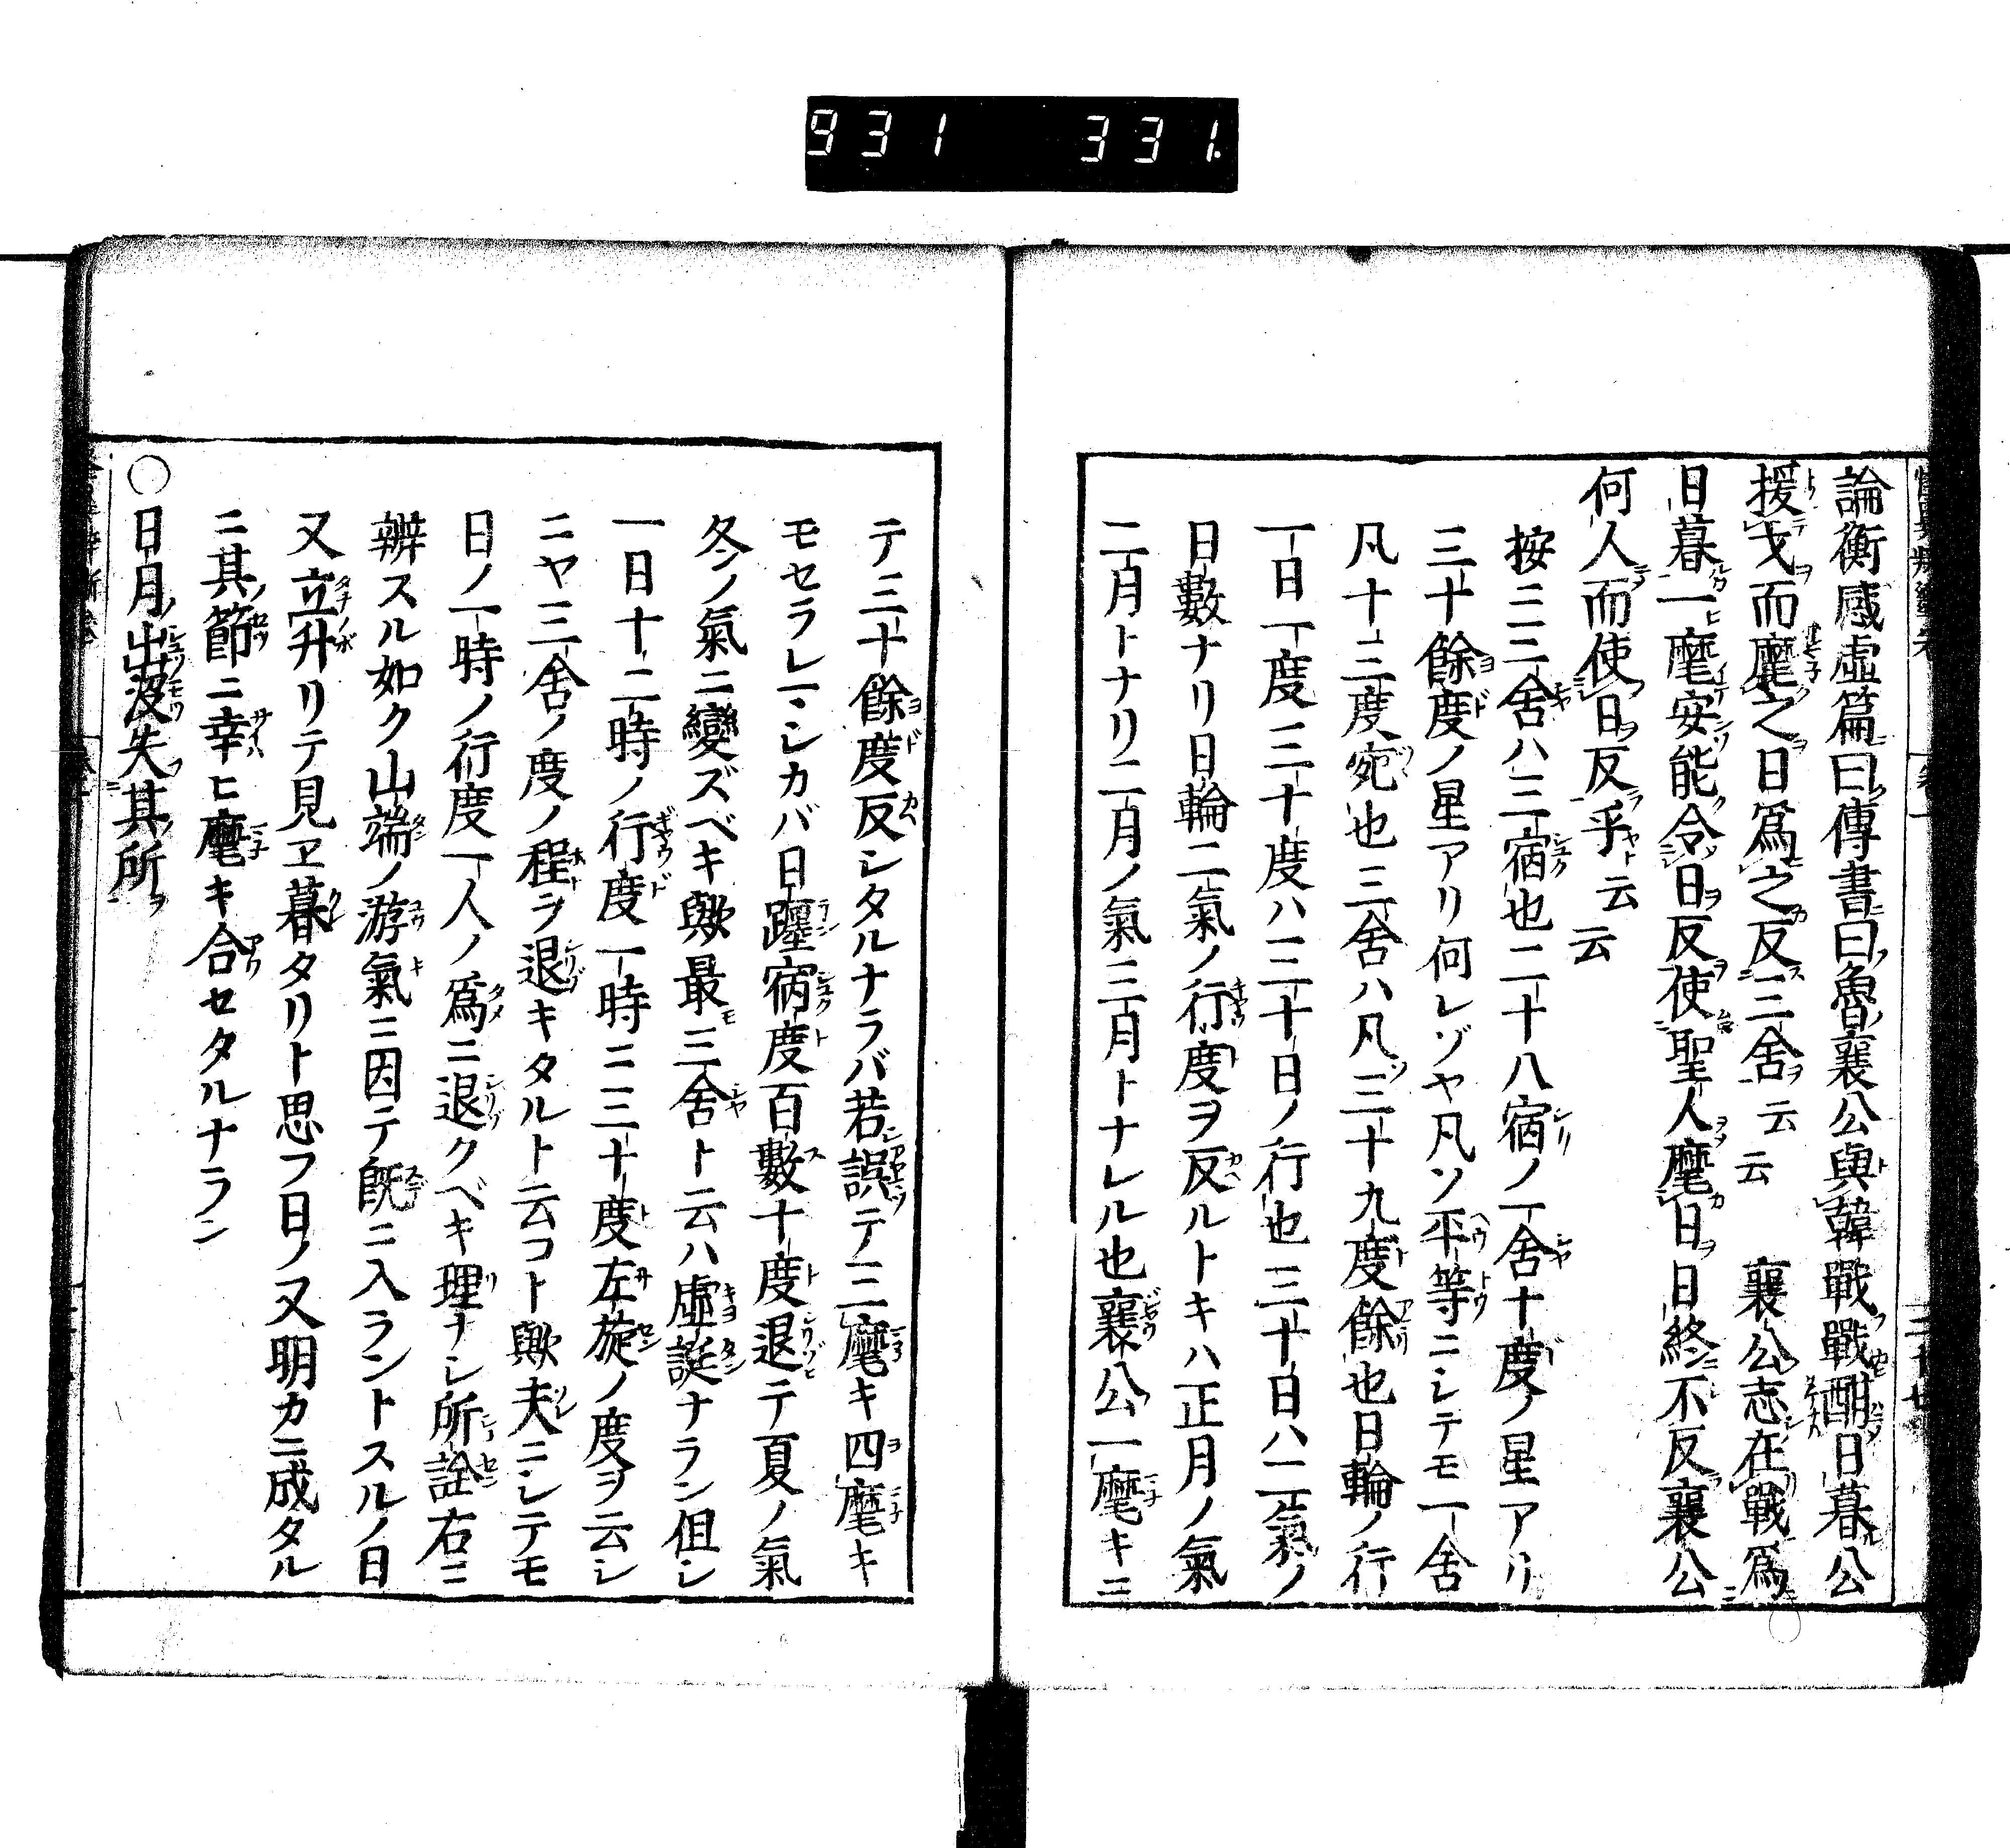 931 331.
論衡感虛篇曰傳書曰魯襄公與韓戰戰酣日暮公
援戈而麾之日爲之反三舍云云 襄公志在戰爲
日暮一麾安能令日反使聖人麾日日終不反襄公
何人而使日反乎云云
按ニ三舍ハ三宿也二十八宿ノ一舍十度ノ星アリ
三十餘度ノ星アリ何レゾヤ凡ソ平等ニシテモ一舍
凡十三度宛也三舍ハ凡三十九度餘也日輪ノ行
一日一度三十度ハ三十日ノ行也三十日ハ二氣ノ
日數ナリ日輪二氣ノ行度ヲ反ルトキハ正月ノ氣
二月トナリ二月ノ氣三月トナレル也襄公一麾キニ
テ三十餘度反シタルナラバ若誤テ三麾キ四麾キ
モセラレマシカバ日躔宿度百數十度退テ夏ノ氣
冬ノ氣ニ變ズベキ歟最三舍ト云ハ虛誕ナラン但シ
一日十二時ノ行度一時ニ三十度左旋ノ度ヲ云シ
ニヤ三舍ノ度ノ程ヲ退キタルト云コト歟夫ニシテモ
日ノ一時ノ行度一人ノ爲ニ退クベキ理ナシ所詮右ニ
辨スル如ク山端ノ游氣ニ因テ既ニ入ラントスルノ日
又立升リテ見ヱ暮タリト思フ日ノ又明カニ成タル
ニ其節ニ幸ヒ麾キ合セタルナラン
○日月出沒失其所